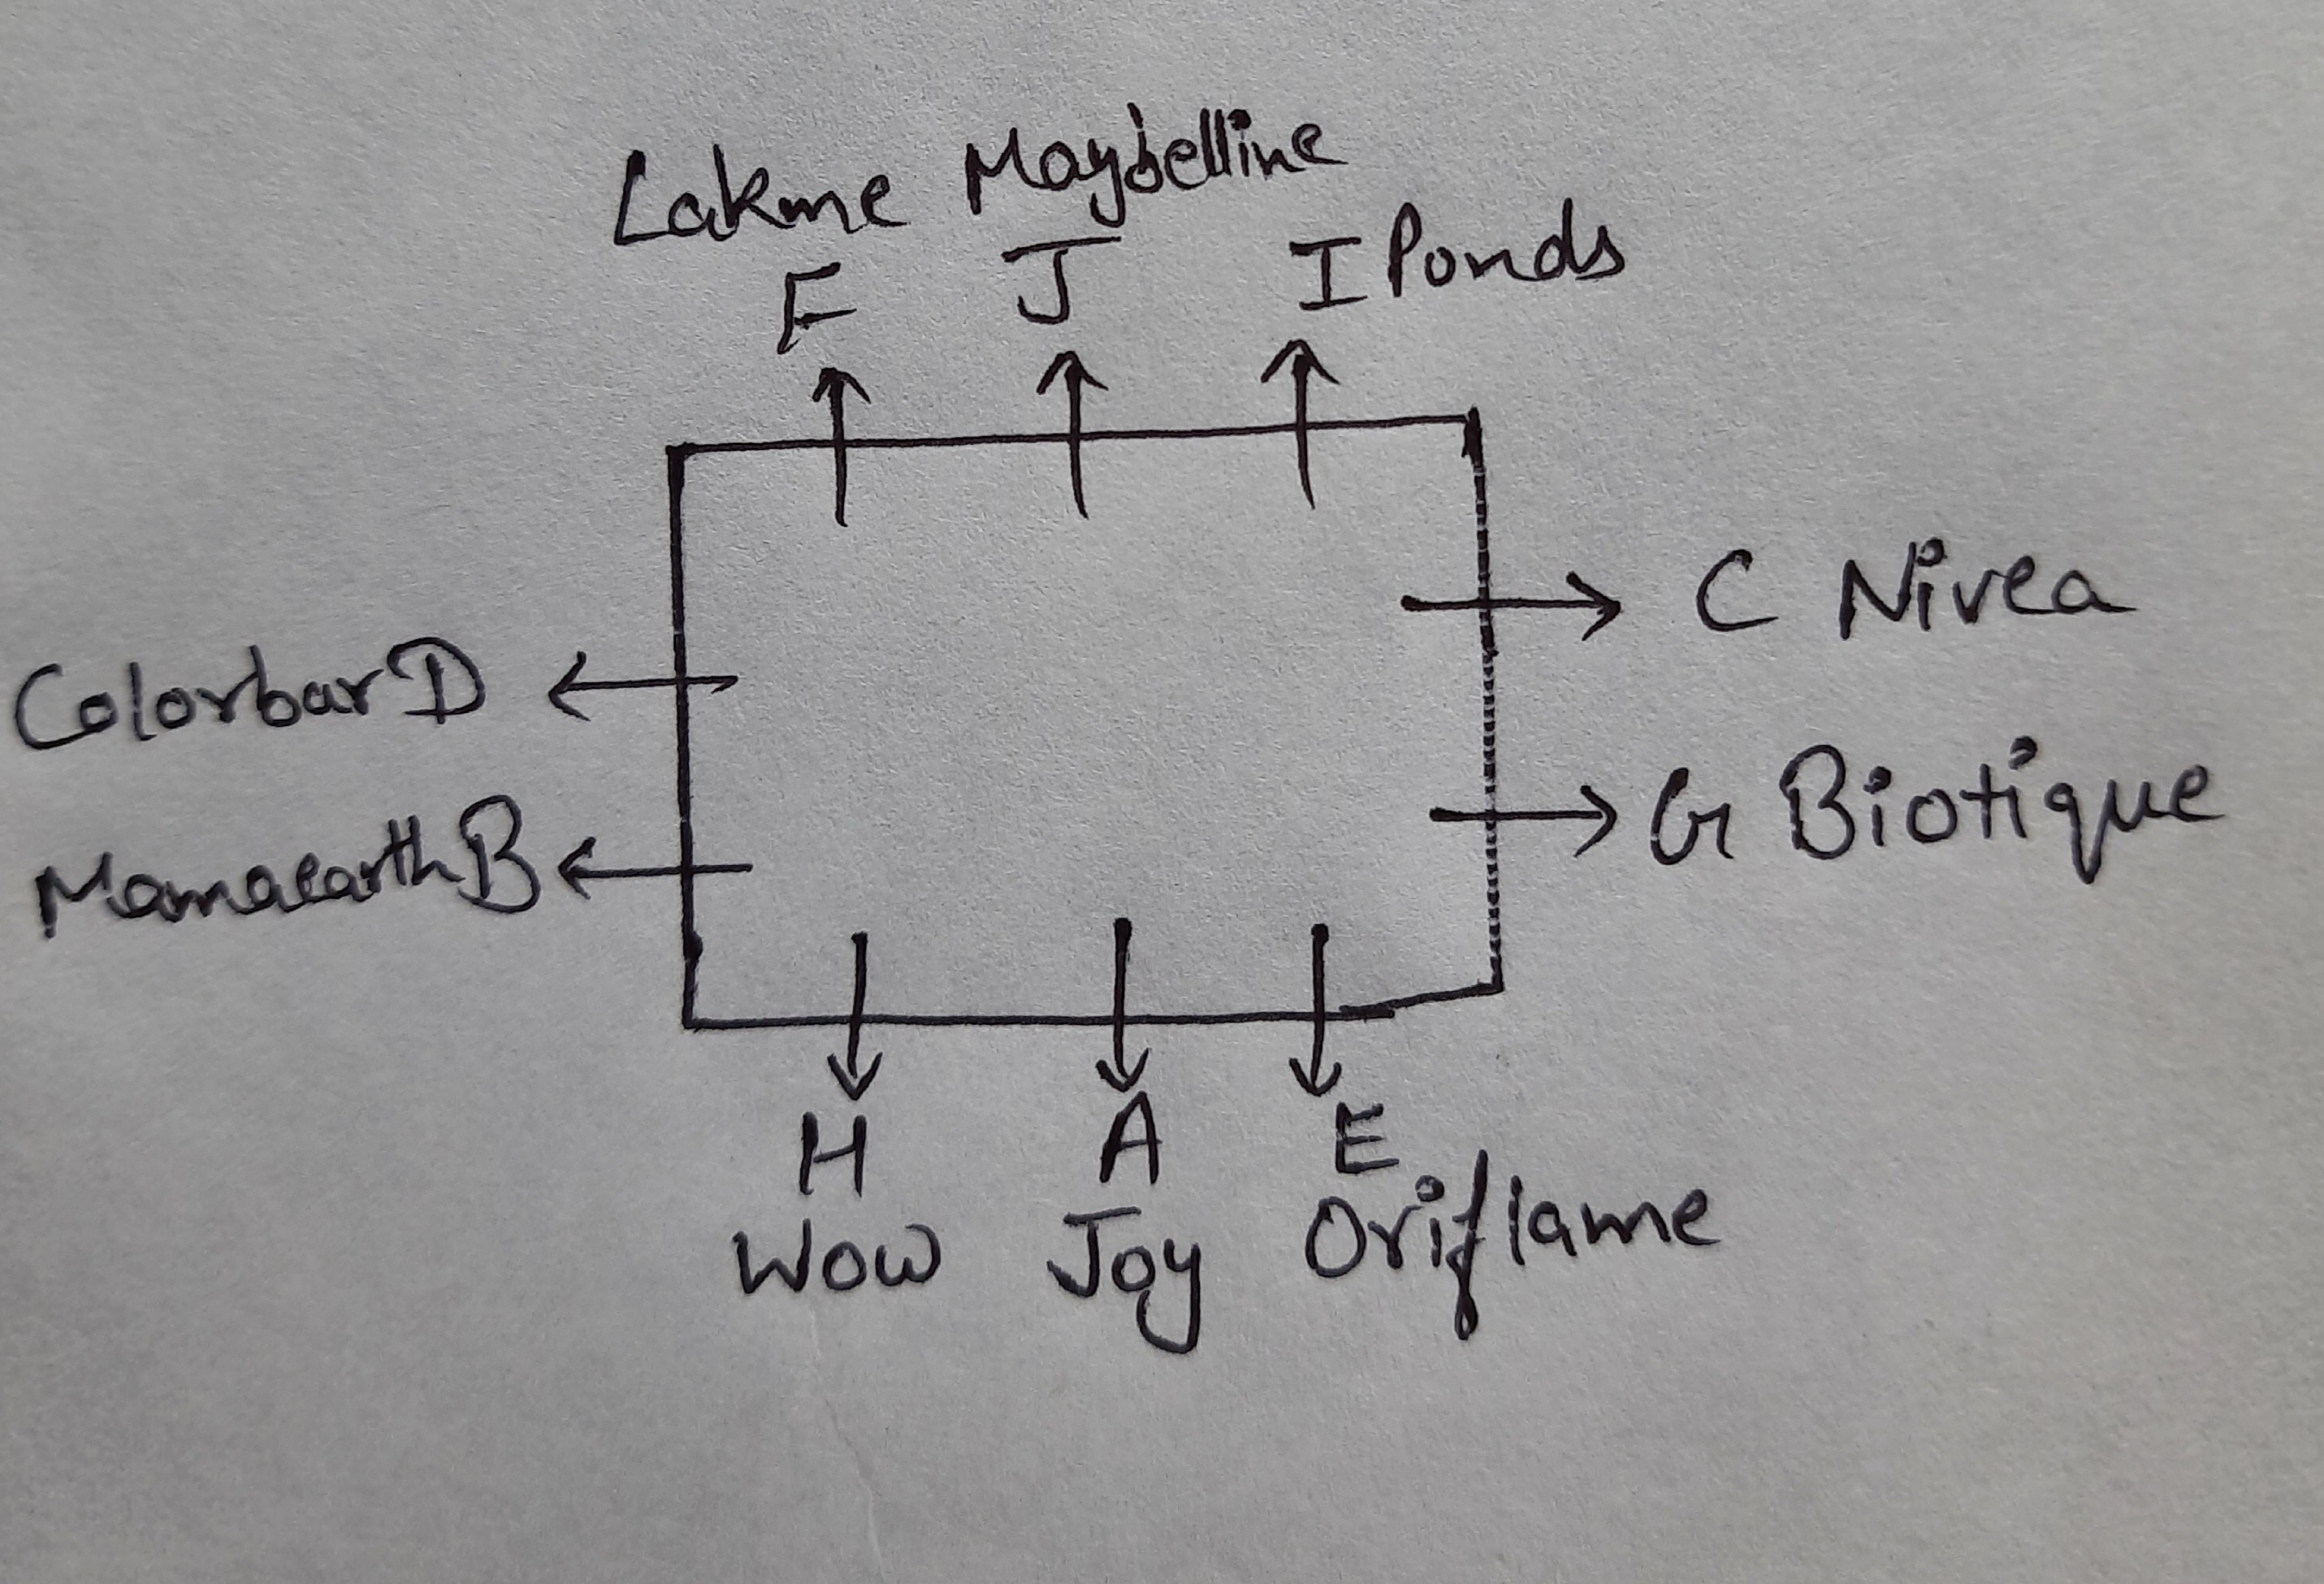 Lakme Maybelline
F J I Ponds
C Nivea
Colorbar D
G Biotique
Mamaearth B
H A E
Wow Joy Oriflame